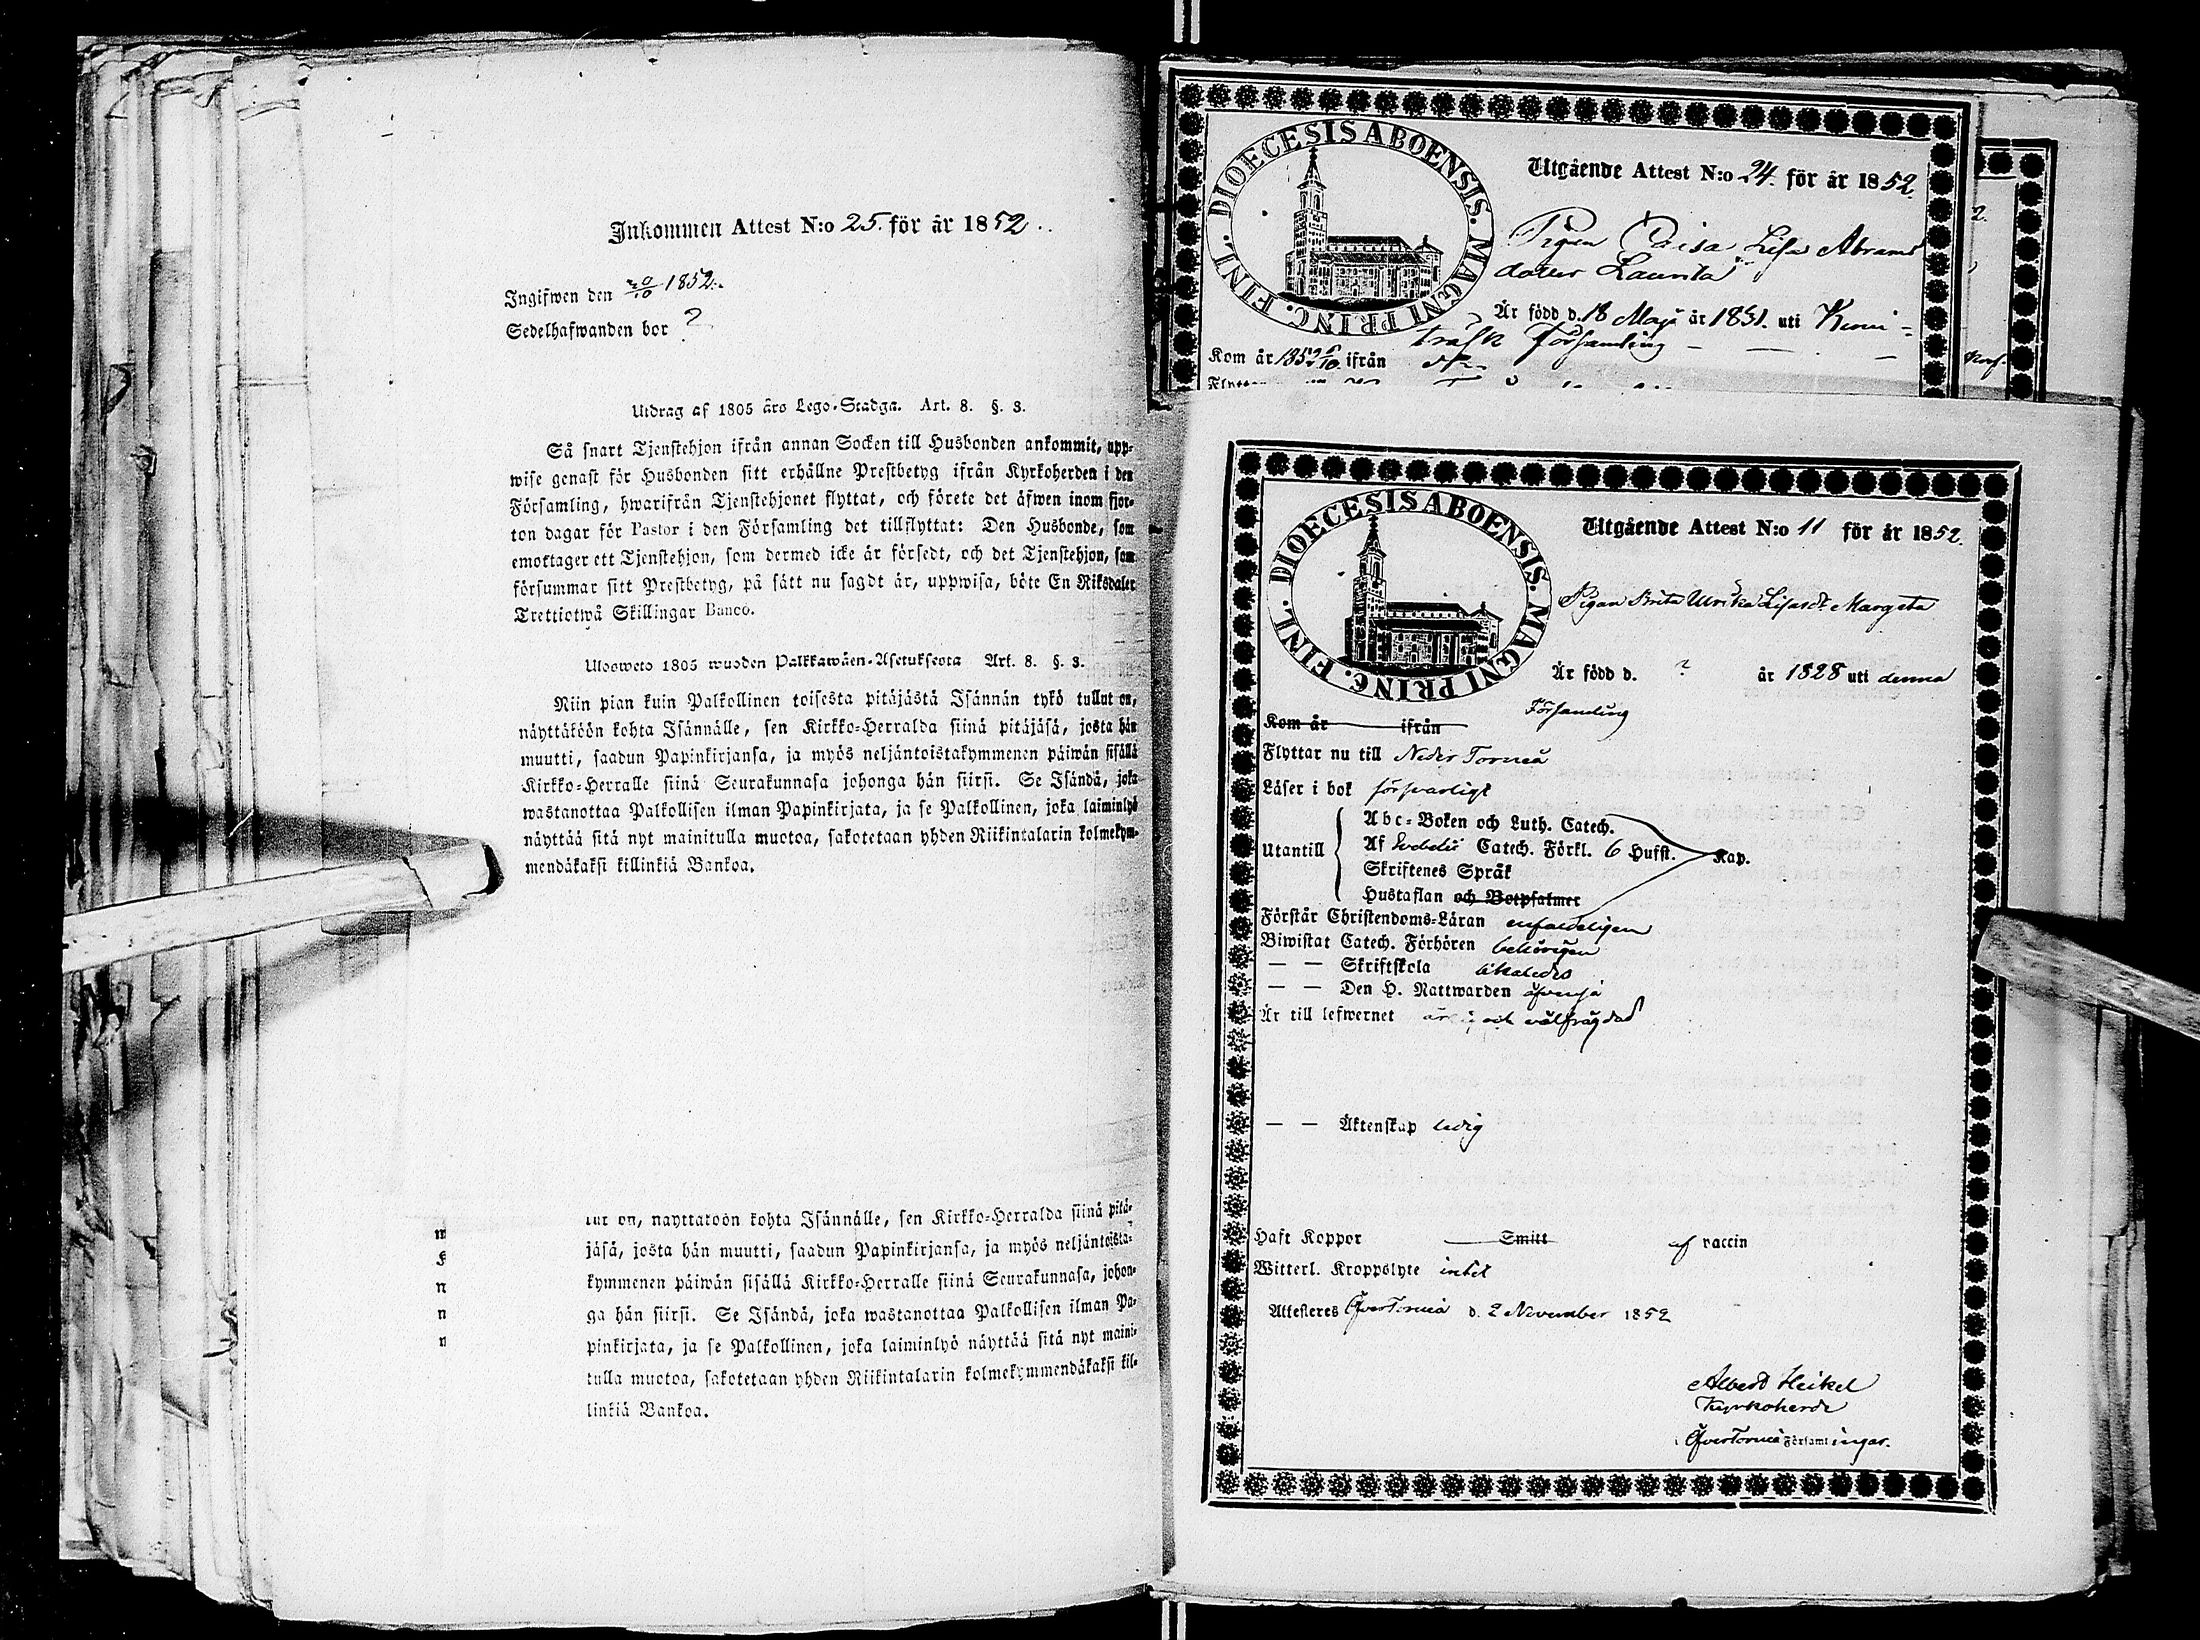 Inkommen Attest N:o 25. för år 1852.
Ingifwen den 20/10 1852.
Sedelhafwanden bor ?
Utdrag af 1805 års Lego-Stadga. Art. 8. §. 3.
Så snart Tjenstehjon ifrån annan Socken till Husbonden ankommit, upp-
wise genast för Husbonden sitt erhållne Prestbetyg ifrån Kyrkoherden i den
Församling, hwarifrån Tjenstehjonet flyttat, och förete det äfwen inom fjor-
ton dagar för Pastor i den Församling det tillflyttat: Den Husbonde, som
emottager ett Tjenstehjon, som dermed icke är försedt, och det Tjenstehjon, som
försummar sitt Prestbetyg, på sätt nu sagdt är, uppwisa, böte En Riksdaler
Trettiotwå Skillingar Banco.
Ulosweto 1805 wuoden Palkkawäen-Asetuksesta Art. 8. §. 3.
Niin pian kuin Palkollinen toisesta pitäjästä Isännän tykö tullut on,
näyttäköön kohta Isännälle, sen Kirkko-Herralda siinä pitäjäsä, josta hän
muutti, saadun Papinkirjansa, ja myös neljäntoistakymmenen päiwän sisällä
Kirkko-Herralle siinä Seurakunnasa johonga hän siirsi. Se Isändä, joka
wastanottaa Palkollisen ilman Papinkirjata, ja se Palkollinen, joka laiminlyö
näyttää sitä nyt mainitulla muotoa, sakotetaan yhden Riikintalarin kolmekym-
mendäkaksi killinkiä Bankoa.
lut on, näyttäköön kohta Isännälle, sen Kirkko-Herralda siinä pitä-
jäsä, josta hän muutti, saadun Papinkirjansa, ja myös neljäntoista-
kymmenen päiwän sisällä Kirkko-Herralle siinä Seurakunnasa, johon-
ga hän siirsi. Se Isändä, joka wastanottaa Palkollisen ilman Pa-
pinkirjata, ja se Palkollinen, joka laiminlyö näyttää sitä nyt maini-
tulla muotoa, sakotetaan yhden Riikintalarin kolmekymmendäkaksi kil-
linkiä Bankoa.
DIOECESIS ABOENSIS. MAGNI PRINC. FINL.
Utgående Attest N:o 24. för år 1852.
Pigan Caisa Lisa Abrams
dotter Laurila
Är född d. 18 Maji år 1831. uti Kemi-
träsk Församling
Kom år 1852 ifrån
DIOECESIS ABOENSIS. MAGNI PRINC. FINL.
Utgående Attest N:o 11 för år 1852.
Pigan Brita Ulrika Lisasdr Margeta
Är född d. ? år 1828 uti denna
Församling
Kom år ifrån
Flyttar nu till Neder Torneå
Läser i bok försvarligt
Utantill
Abc-Boken och Luth. Catech.
Af Svebelii Catech. Förkl. 6 Hufst. Kap.
Skriftenes Språk
Hustaflan och Botpsalmer
Förstår Christendoms-Läran enfaldeligen
Biwistat Catech. Förhören behörigen
— — Skriftskola likaledes
— — Den H. Nattwarden äfvenså
Är till lefwernet ärlig och välfrägdad
— — Äktenskap ledig
Haft Koppor Smitt af vaccin
Witterl. Kroppslyte intet
Attesteras ÖfverTorneå d. 2 November 1852
Albert Heikel
Kyrkoherde
i ÖfverTorneå Församlingar.